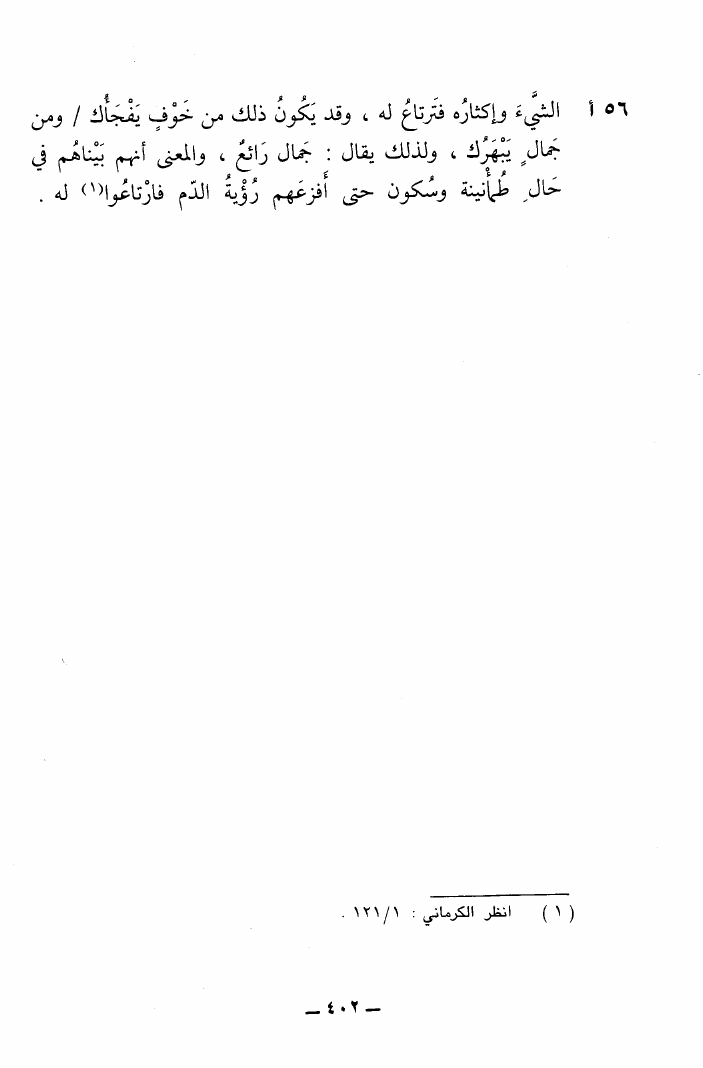 ٥٦ أ الشَّيءَ وإكثارُه فَترتاعُ له ، وقد يَكُونُ ذلك من خَوْفٍ يَفْجَأُكَ / ومن
جَمالٍ يَبْهَرُك ، ولذلك يقال : جَمال رَائعٌ ، والمعنى أنهم بَيْناهُم في
حَالِ طُمأْنينة وسُكون حتى أَفزعَهم رُؤْيةُ الدّم فارْتاعُوا(١) له .
(١) انظر الكرماني : ١٢١/١ .
ــ ٤٠٢ ــ